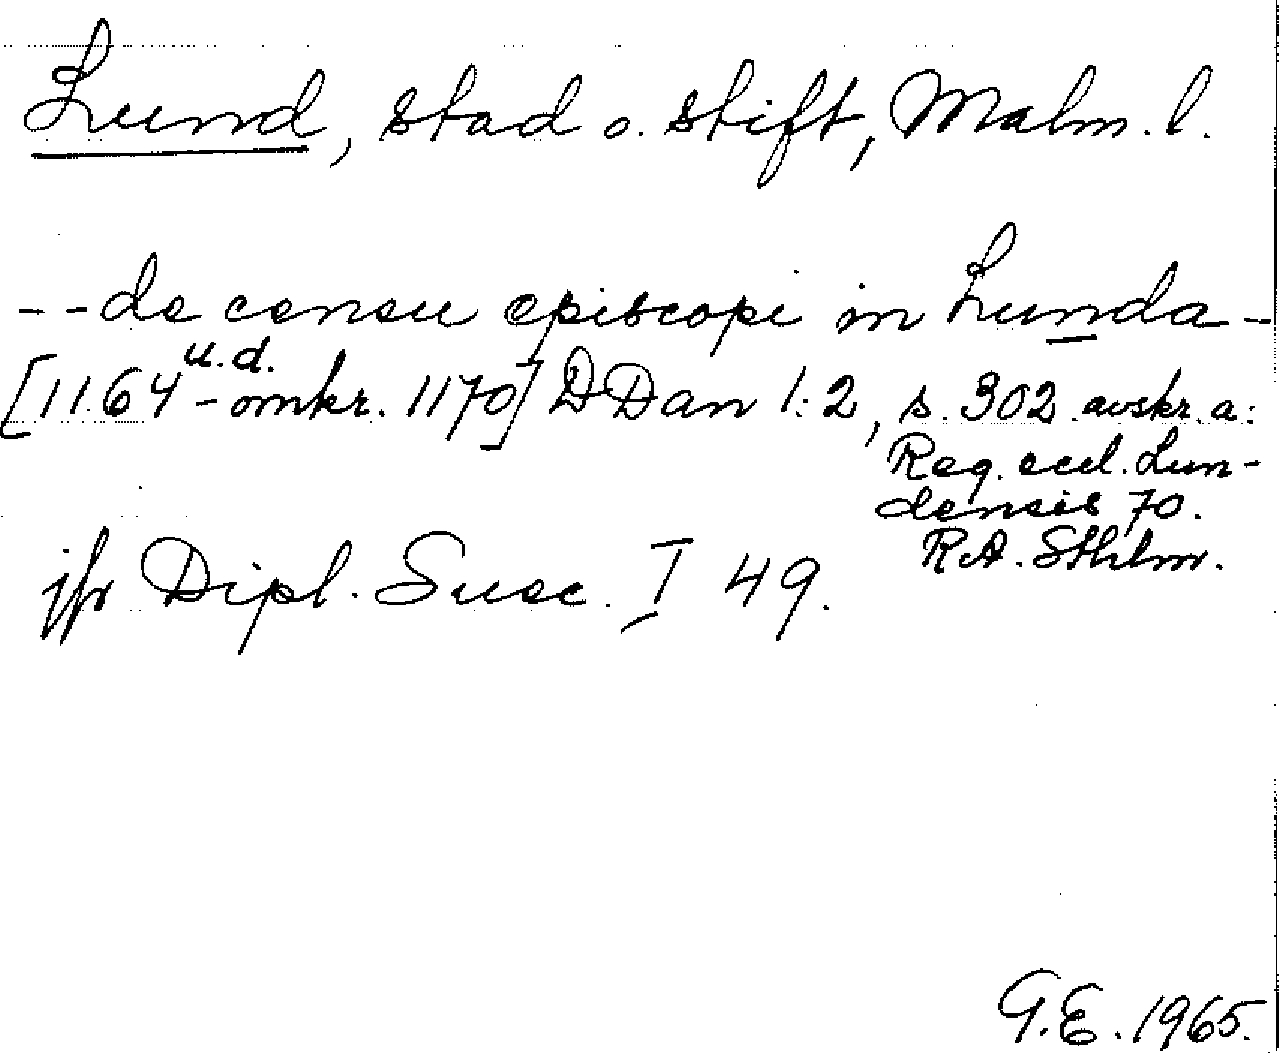 Lund, stad o. stift, Malm. l.
-- de censu episcopi in Lunda -
u.d.
[1164 - omkr. 1170] DDan 1:2, s. 302 avskr. a:
Reg. eccl. Lun-
densis 70.
RA. Sthlm.
jfr Dipl. Suec. I 49.
G.E. 1965.